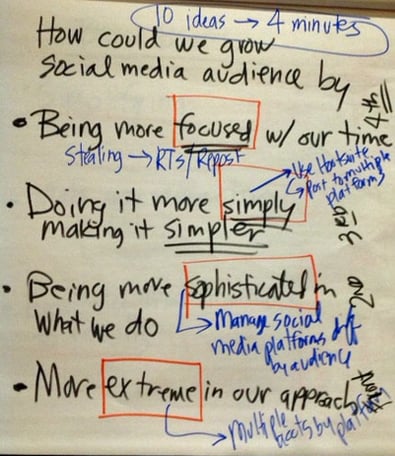 10 ideas → 4 minutes
How could we grow
social media audience by
4th
• Being more focused w/ our time
Stealing → RTs/Repost
Use Hootsuite
→ Post to multiple
platforms
• Doing it more simply
making it simpler
3rd
• Being more sophisticated in
What we do
2nd
→ Manage social
media platforms diff
by audience
• More extreme in our approach
→ multiple
accts by platform